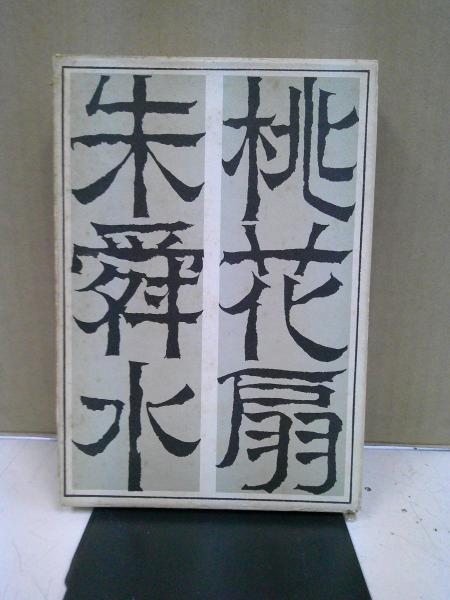 桃花扇
朱舜水